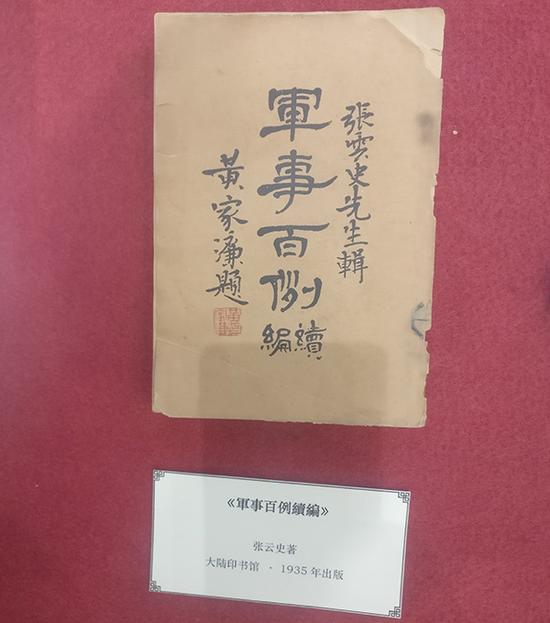 張雲史先生輯
軍事百例
續編
黃家濂題
《軍事百例續編》
张云史著
大陆印书馆 · 1935年出版